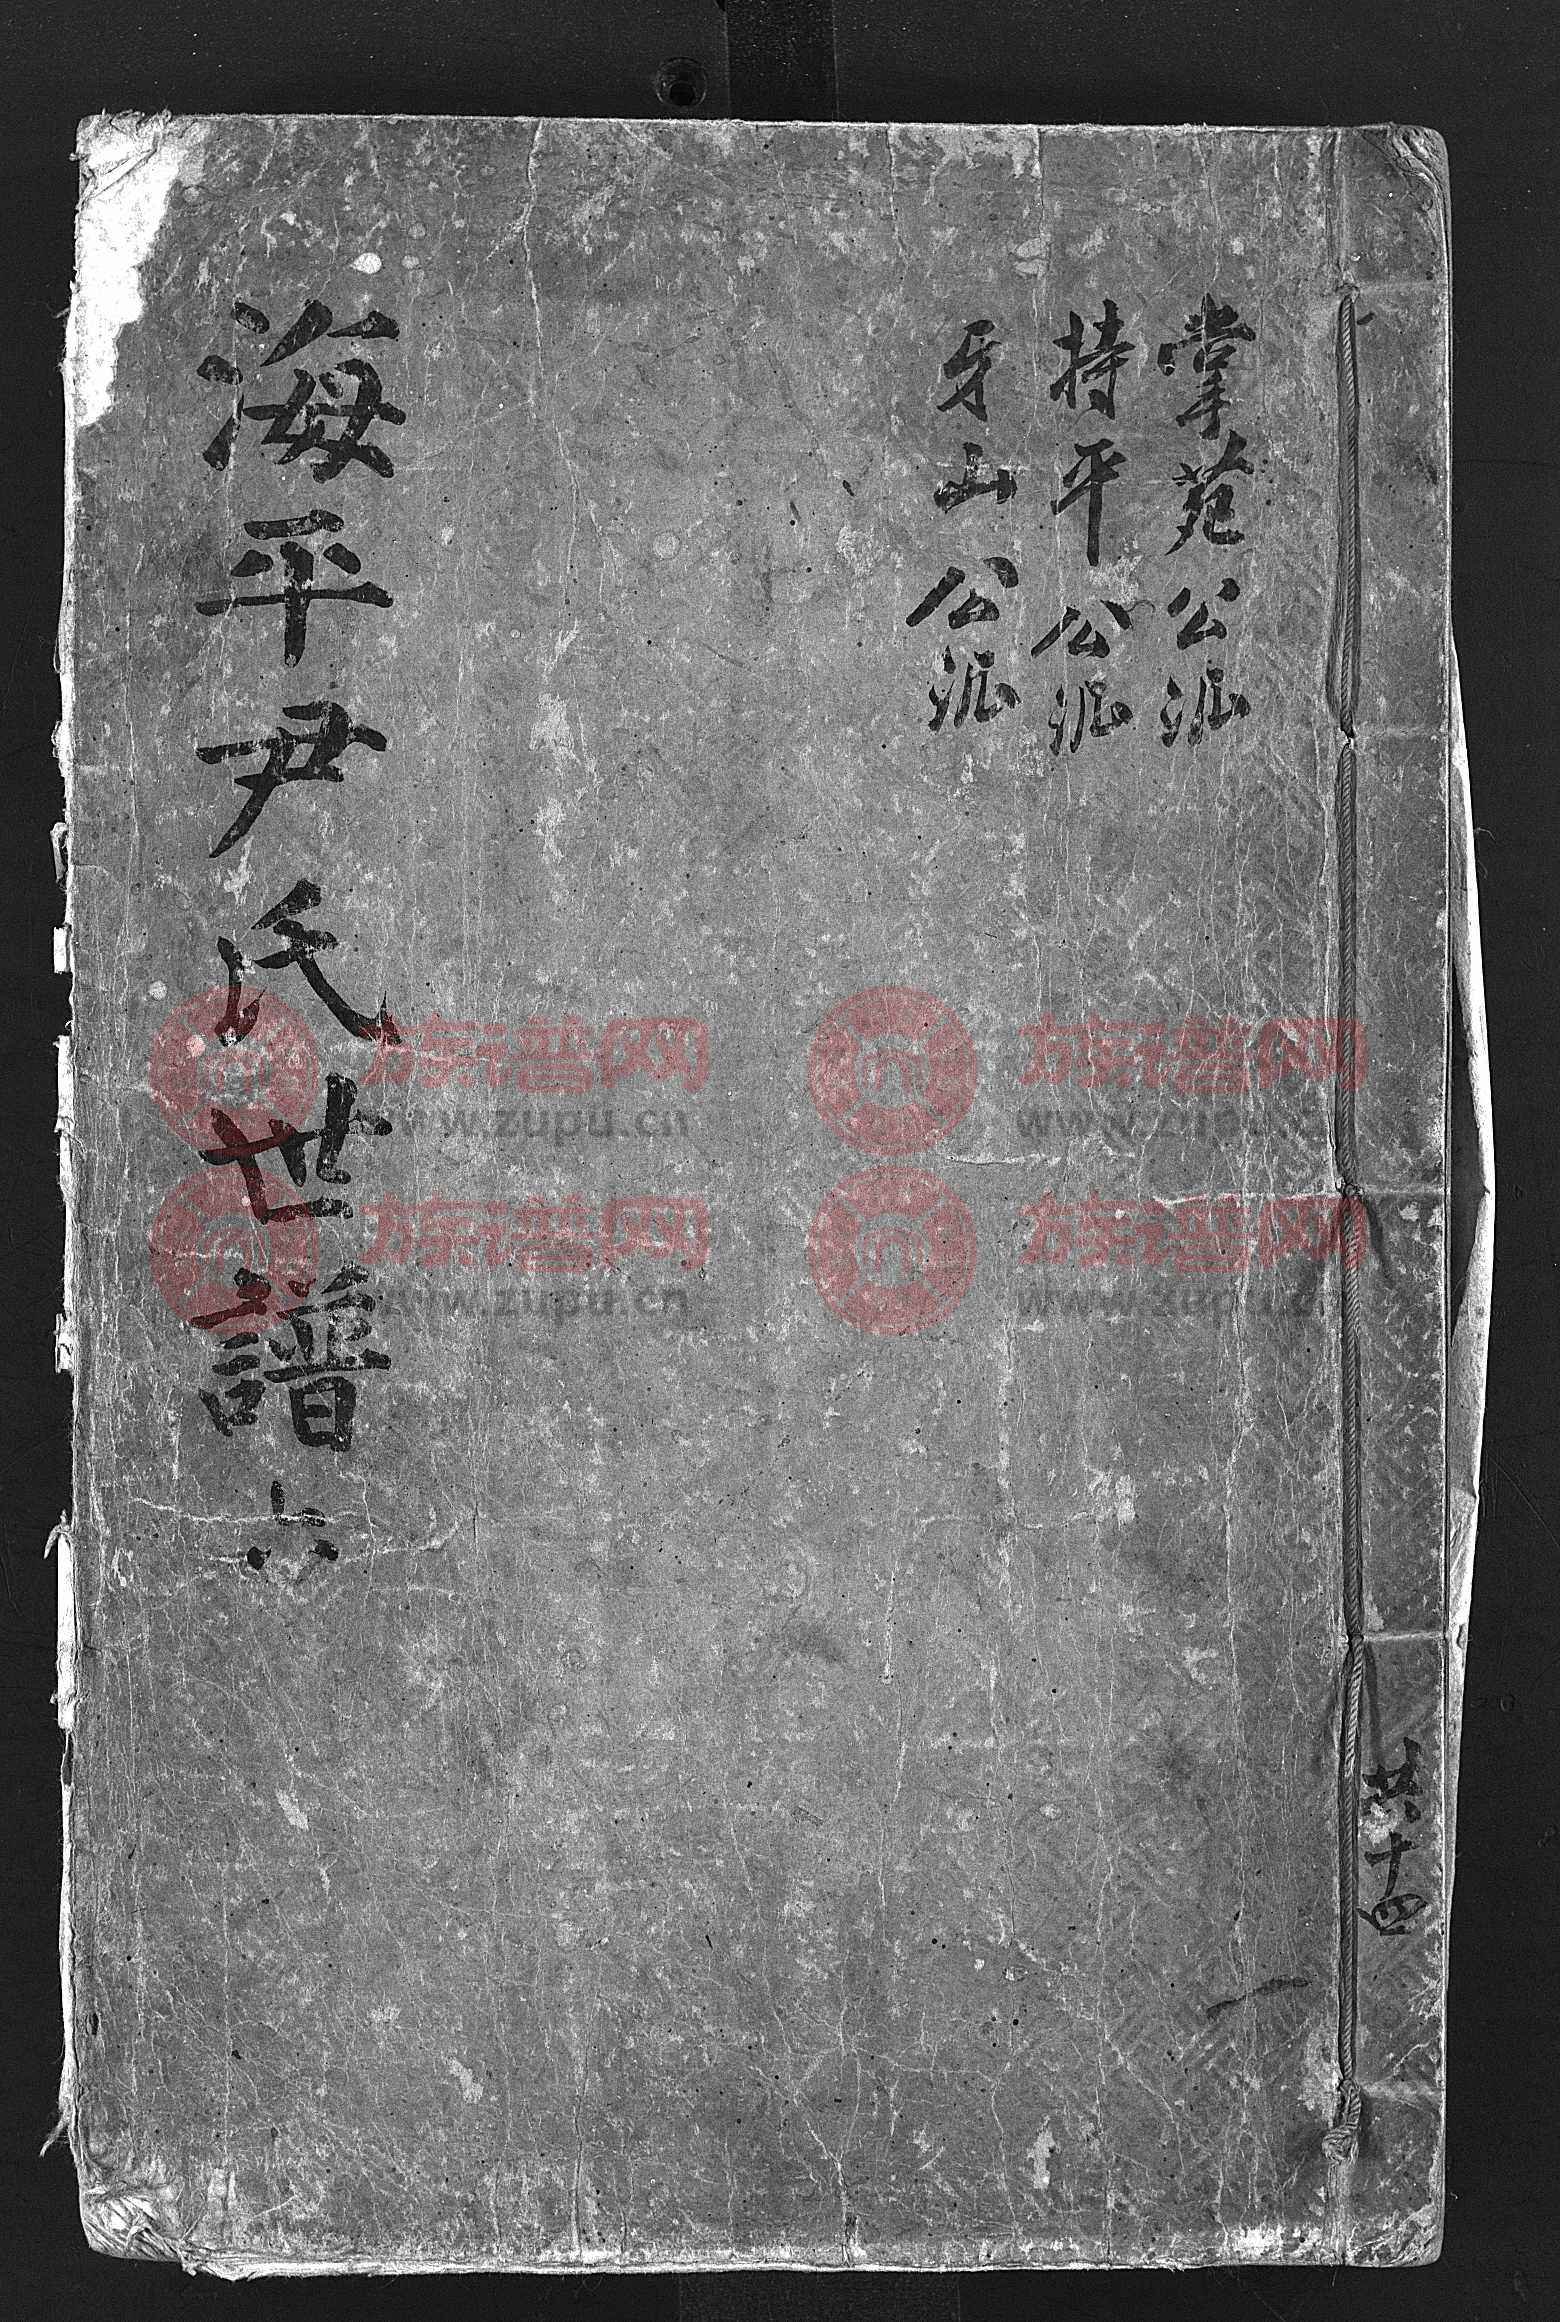 掌苑公派
持平公派
牙山公派
海平尹氏世譜 六
共十四
族谱网
www.zupu.cn
族谱网
www.zupu.cn
族谱网
www.zupu.cn
族谱网
www.zupu.cn